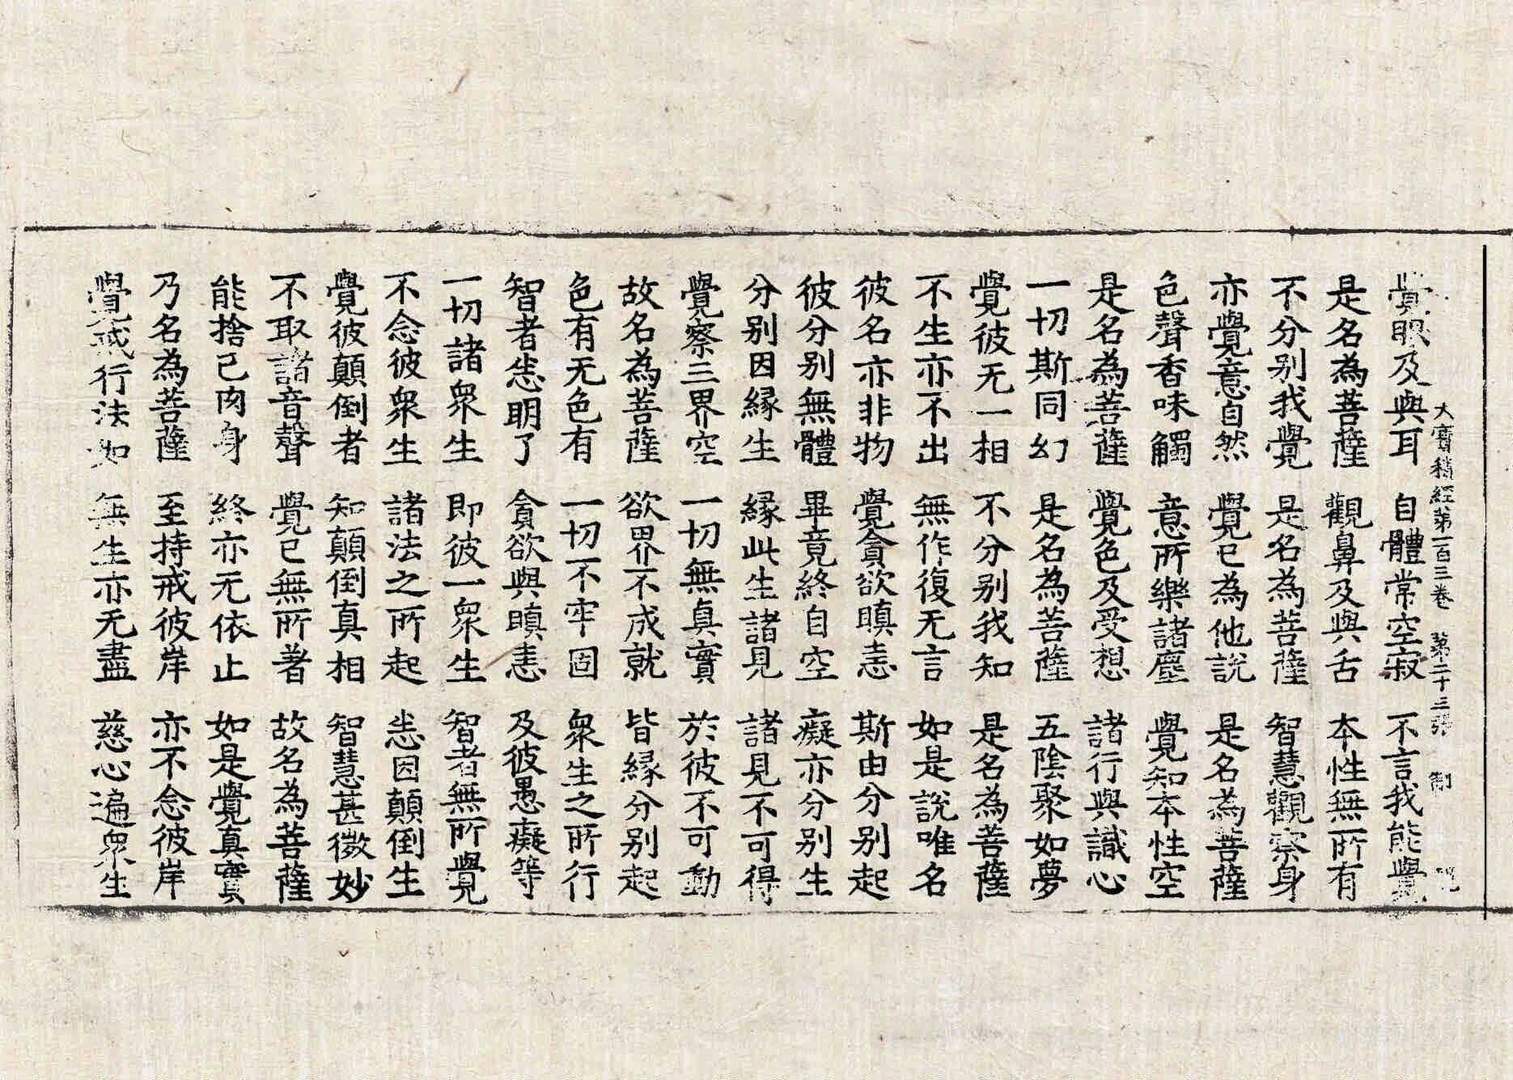 大寶積經第一百三卷 第二十三張 制
覺眼及與耳 自體常空寂 不言我能覺
是名為菩薩 觀鼻及與舌 本性無所有
不分別我覺 是名為菩薩 智慧觀察身
亦覺意自然 覺已為他說 是名為菩薩
色聲香味觸 意所樂諸塵 覺知本性空
是名為菩薩 覺色及受想 諸行與識心
一切斯同幻 是名為菩薩 五陰聚如夢
覺彼无一相 不分別我知 是名為菩薩
不生亦不出 無作復无言 如是說唯名
彼名亦非物 覺貪欲瞋恚 斯由分別起
彼分別無體 畢竟終自空 癡亦分別生
分別因緣生 緣此生諸見 諸見不可得
覺察三界空 一切無真實 於彼不可動
故名為菩薩 欲界不成就 皆緣分別起
色有无色有 一切不牢固 衆生之所行
智者悉明了 貪欲與瞋恚 及彼愚癡等
一切諸衆生 即彼一衆生 智者無所覺
不念彼衆生 諸法之所起 悉因顛倒生
覺彼顛倒者 知顛倒真相 智慧甚微妙
不取諸音聲 覺已無所著 故名為菩薩
能捨己肉身 終亦无依止 如是覺真實
乃名為菩薩 至持戒彼岸 亦不念彼岸
覺戒行法如 無生亦无盡 慈心遍衆生